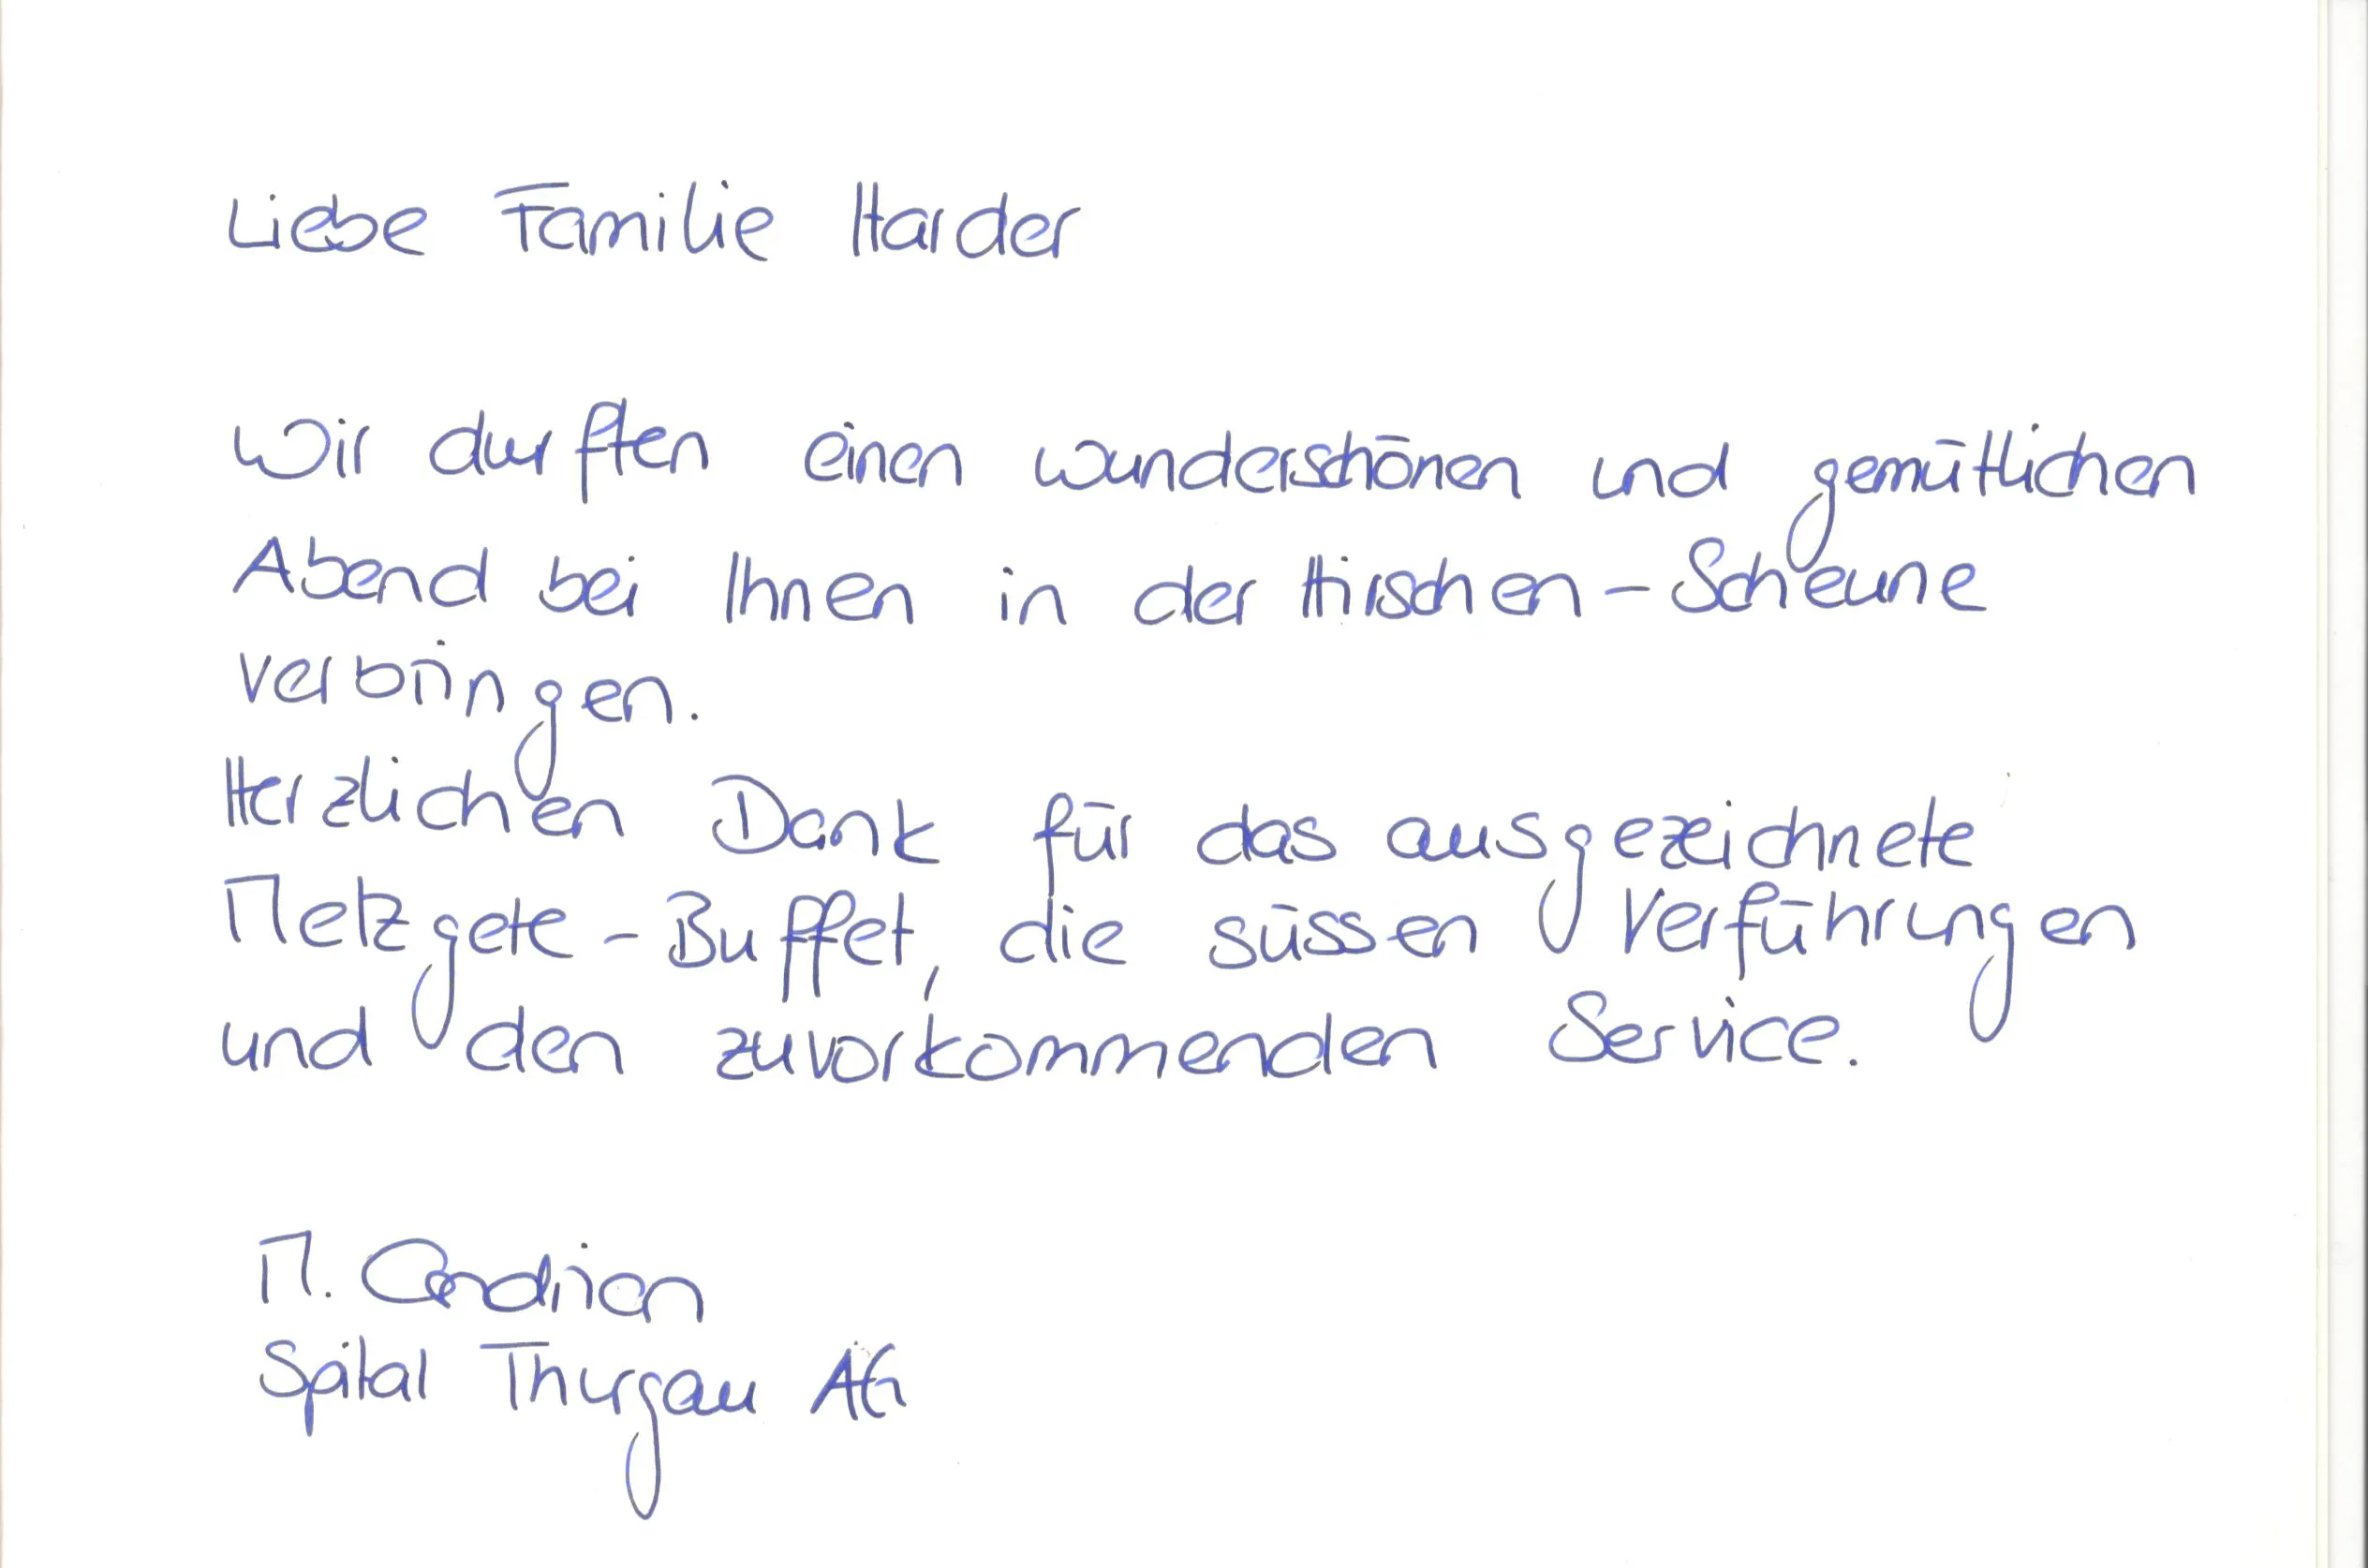 Liebe Familie Harder
Wir durften einen wunderschönen und gemütlichen
Abend bei Ihnen in der Hirschen-Scheune
verbringen.
Herzlichen Dank für das ausgezeichnete
Metzgete-Buffet, die süssen Verführungen
und den zuvorkommenden Service.
M.
Spital Thurgau AG